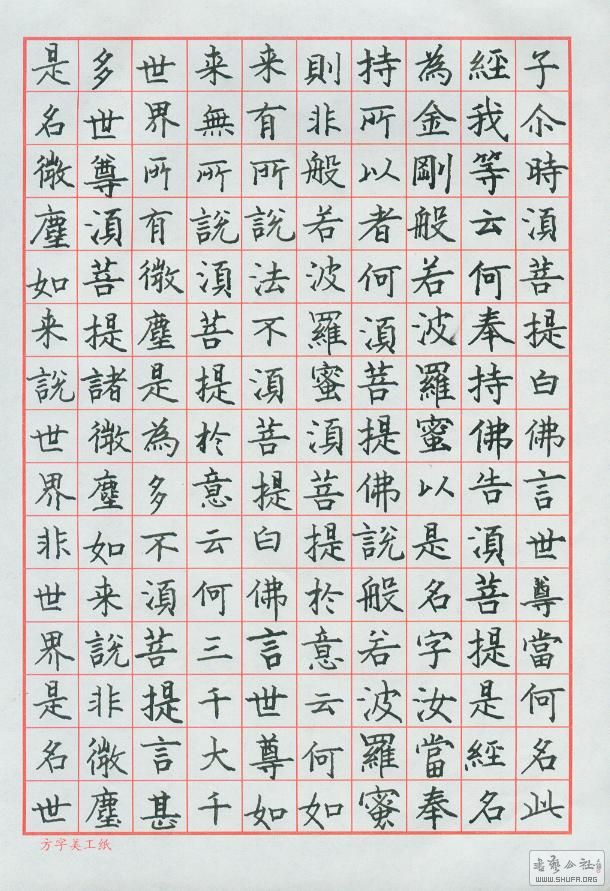 子尒時須菩提白佛言世尊當何名此
經我等云何奉持佛告須菩提是經名
為金剛般若波羅蜜以是名字汝當奉
持所以者何須菩提佛說般若波羅蜜
則非般若波羅蜜須菩提於意云何如
来有所說法不須菩提白佛言世尊如
来無所說須菩提於意云何三千大千
世界所有微塵是為多不須菩提言甚
多世尊須菩提諸微塵如来說非微塵
是名微塵如来說世界非世界是名世
方字美工纸
WWW.SHUFA.ORG